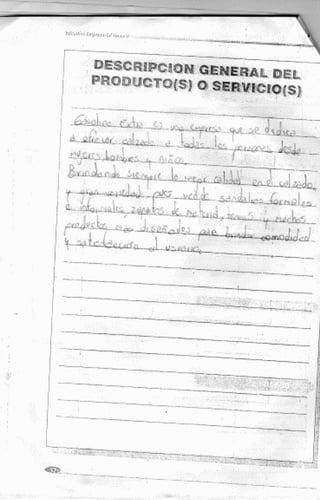 Iniciativa Empresarial
DESCRIPCION GENERAL DEL
PRODUCTO(S) O SERVICIO(S)
Extro es una empresa que se dedica
a ofrecer calzado a todas las personas desde
mujeres, hombres y niños.
Brindando siempre la mejor calidad en el calzado,
y gran variedad pues vende sandalias formales
e informales, zapatos de material, tenis y muchos
productos más diseñados para brindar comodidad
y satisfacción al usuario.